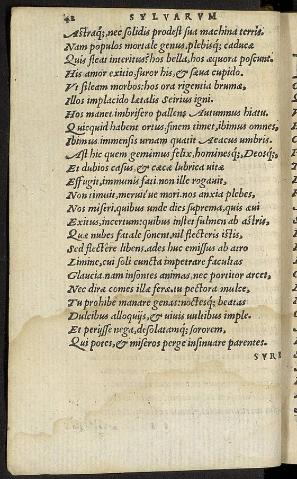 42 SYLVARVM
Astraq;, nec solidis prodest sua machina terris.
Nam populos mortale genus, plebisq; caducæ
Quis fleat interitus? hos bella, hos æquora poscunt.
His amor exitio, furor his, & sæua cupido.
Vt sileam morbos: hos ora rigentia brumæ,
Illos implacido letalis Seirius igni.
Hos manet imbrifero pallens Autumnus hiatu.
Quicquid habent ortus, finem timet, ibimus omnes,
Ibimus immensis urnam quatit Aeacus umbris.
Ast hic quem gemimus felix, hominesq;, Deosq;,
Et dubios casus, & cæcæ lubrica uitæ
Effugit, immunis fati. non ille rogauit,
Non timuit, meruit' ue mori. nos anxia plebes,
Nos miseri, quibus unde dies suprema, quis æui
Exitus, incertum: quibus instet fulmen ab astris,
Quæ nubes fatale sonent. nil flecteris istis,
Sed flectere libens. ades huc emissus ab atro
Limine, cui soli cuncta impetrare facultas
Glaucia. nam insontes animas, nec portitor arcet,
Nec diræ comes ille feræ. tu pectora mulce,
Tu prohibe manare genas: noctesq; beatas
Dulcibus alloquijs, & uiuis uultibus imple.
Et perijsse nega, desolatamq; sororem,
Qui potes, & miseros perge insinuare parentes.